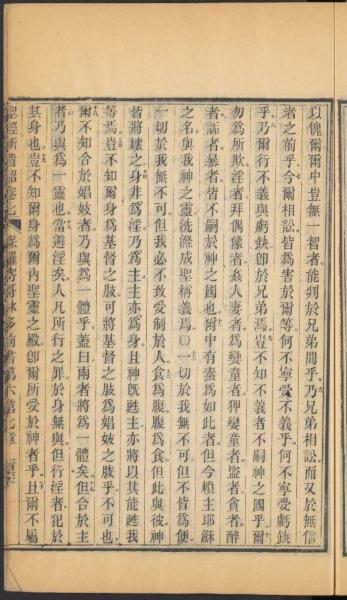 以愧爾爾中豈無一智者能判於兄弟間乎乃兄弟相訟而又於無信
者之前乎今爾相訟皆爲害於爾等何不寧受不義乎何不寧受虧缺
乎乃爾行不義與虧缺卽於兄弟焉豈不知不義者不嗣神之國乎爾
勿爲所欺淫者拜偶像者姦人妻者爲孌童者狎孌童者盜者貪者醉
者詬者暴者皆不嗣於神之國也爾中有素爲如此者但今賴主耶穌
之名與我神之靈洗滌成聖稱義焉〇一切於我無不可但不皆爲便
一切於我無不可但我必不致受制於人食爲腹腹爲食但此與彼神
皆將壞之身非爲淫乃爲主主亦爲身且神旣甦主亦將以其能甦我
等焉豈不知爾身爲基督之肢可將基督之肢爲娼妓之肢乎不可也
爾不知合於娼妓者乃與爲一體乎蓋曰兩者將爲一體矣但合於主
者乃與爲一靈也當避淫矣人凡所行之罪於身無與但行淫者犯於
其身也豈不知爾身爲爾內聖靈之殿卽爾所受於神者乎且爾不屬
聖經新遺詔卷七 保羅寄哥林多前書第六第七章